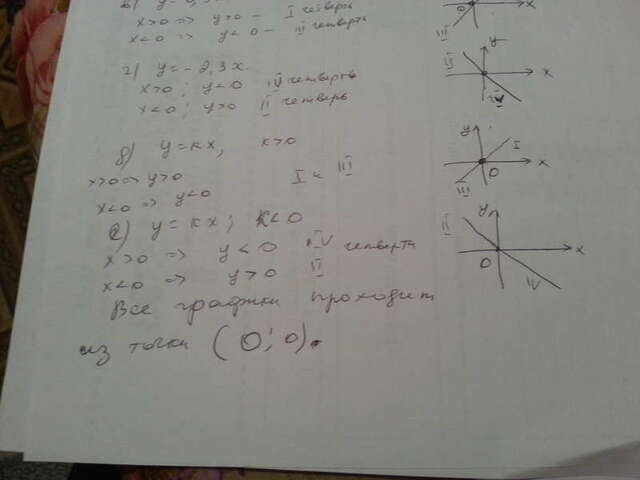 x>0 => y>0 - I четверть
x<0 => y<0 - III четверть
г) y = - 2,3x.
x>0; y<0 IV четверть
x<0; y>0 II четверть
д) y = kx, k>0
x>0 => y>0
x<0 => y<0 I и III
е) y = kx; k<0
x>0 => y<0 IV четверти
x<0 => y>0 II
Все графики проходит
из точки (0; 0).
O x
III
y
x
III
IV
y
I
O x
III
y
II
O x
IV